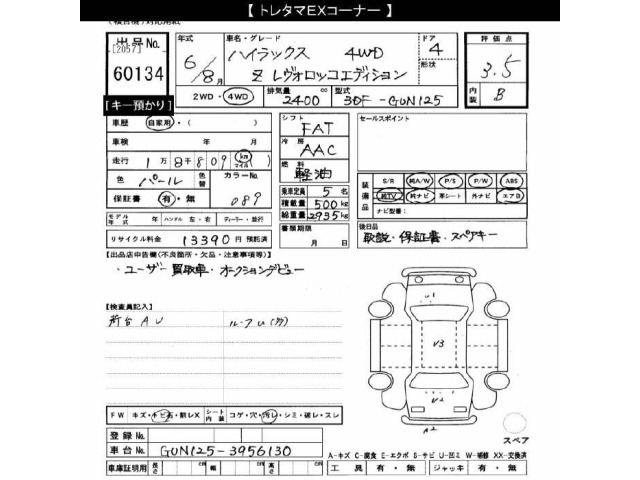 【 トレタマEXコーナー 】
出品No.
[2057]
60134
【キー預かり】
年式
6/8月
車名・グレード
ハイラックス 4WD
Z レヴォロッコエディション
ドア
4
形状
評価点
3.5
内装
B
2WD・4WD
排気量
2400 cc
型式
3DF-GUN125
車歴
自家用・( )
車検 年 月
走行 1万8千809 km マイル
色 パール 色替
カラーNo. 089
保証書 有・無
モデル年式 年 ハンドル 左・右 ディーラー・並行
リサイクル料金 13390 円 預託済
シフト
FAT
冷房
AAC
燃料
軽油
乗車定員 5 名
積載量 500 kg
総重量 2935 kg
書類期限
月 日
セールスポイント
装備品
S/R 純A/W P/S P/W ABS
純TV 純ナビ 革シート 外ナビ エアB
ナビ型番:
後日品
取説・保証書・スペアキー
【出品店申告欄(不良箇所・欠品・注意事項等)】
・ユーザー買取車・オークションデビュー
【検査員記入】
荷台AU
ルーフU(大)
U1
V3
U2
A2
スペア
FW キズ・トビ石・割レX
シート内装 コゲ・穴・汚レ・シミ・破レ・スレ
登録No.
車台No. GUN125-3956130
車庫証明用 長さ cm 幅 cm 高さ cm
A-キズ C-腐食 E-エクボ S-サビ U-凹ミ W-補修 XX-交換済
工具 有・無 ジャッキ 有・無